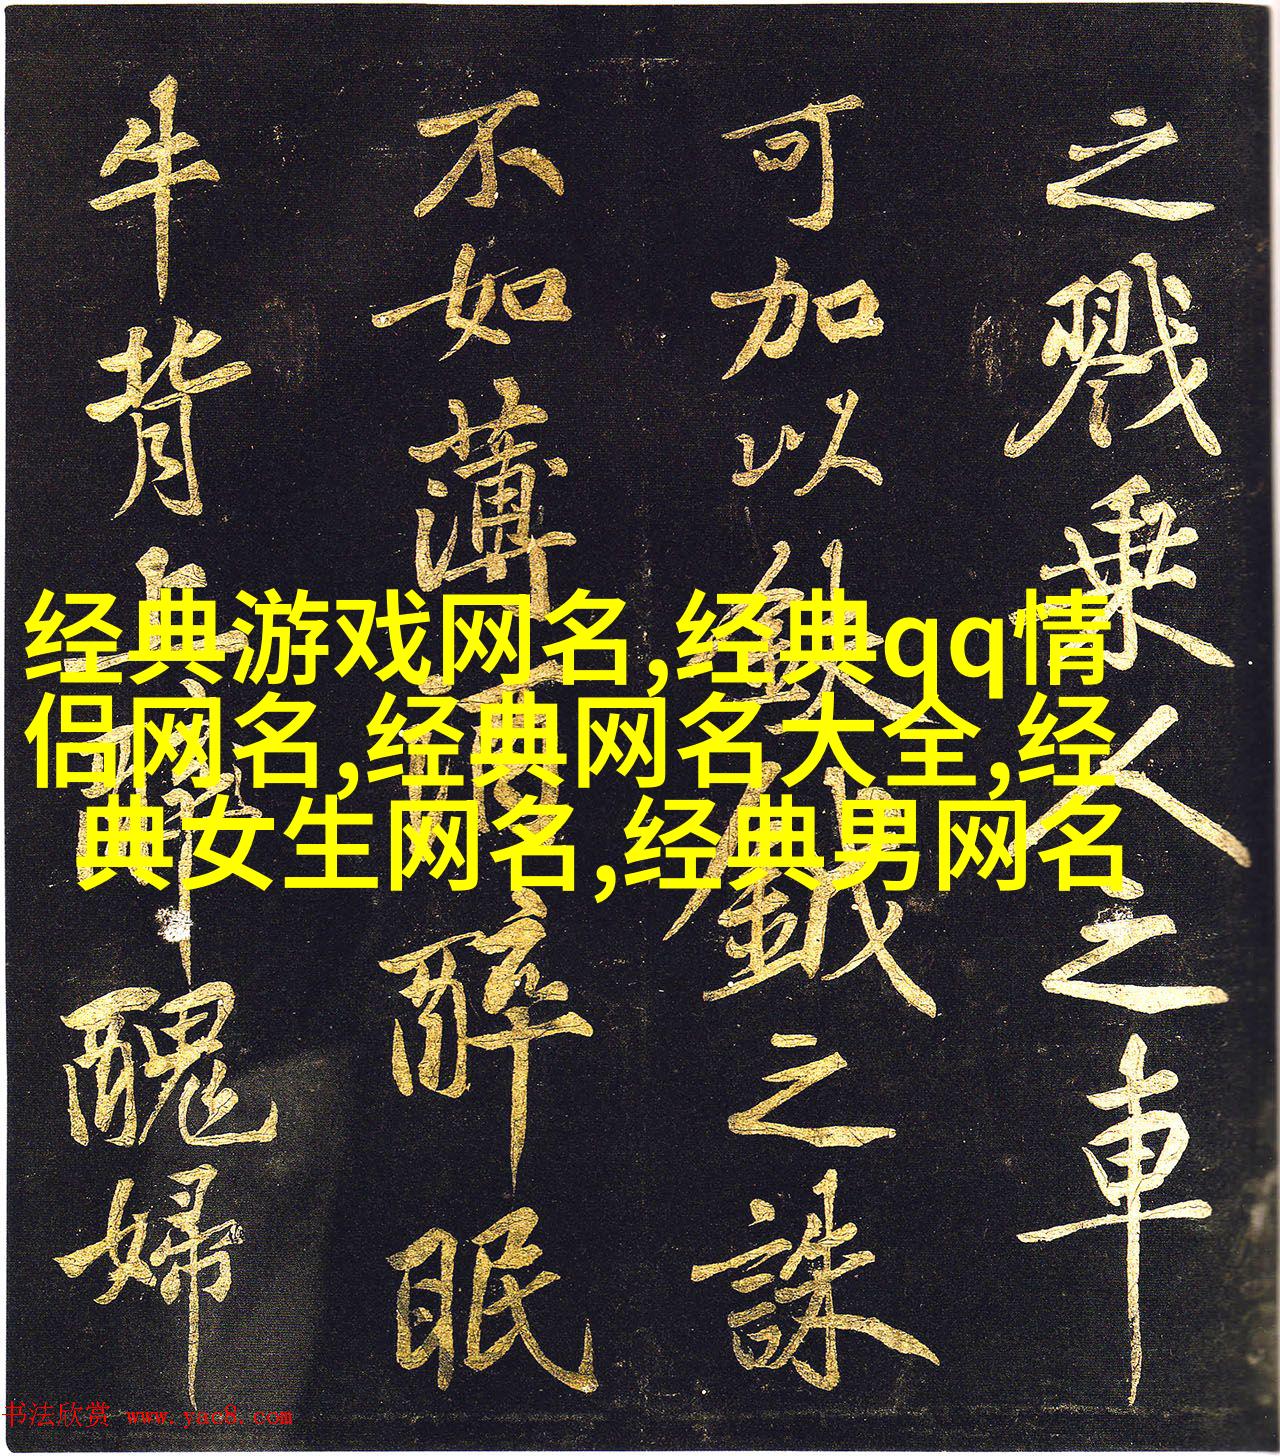 之戮乘人之車
可加以鈇鉞之誅
不如薄酒醉眠
牛背上醉醜婦
经典游戏网名,经典qq情
侣网名,经典网名大全,经
典女生网名,经典男网名
书法欣赏 www.yac8.com